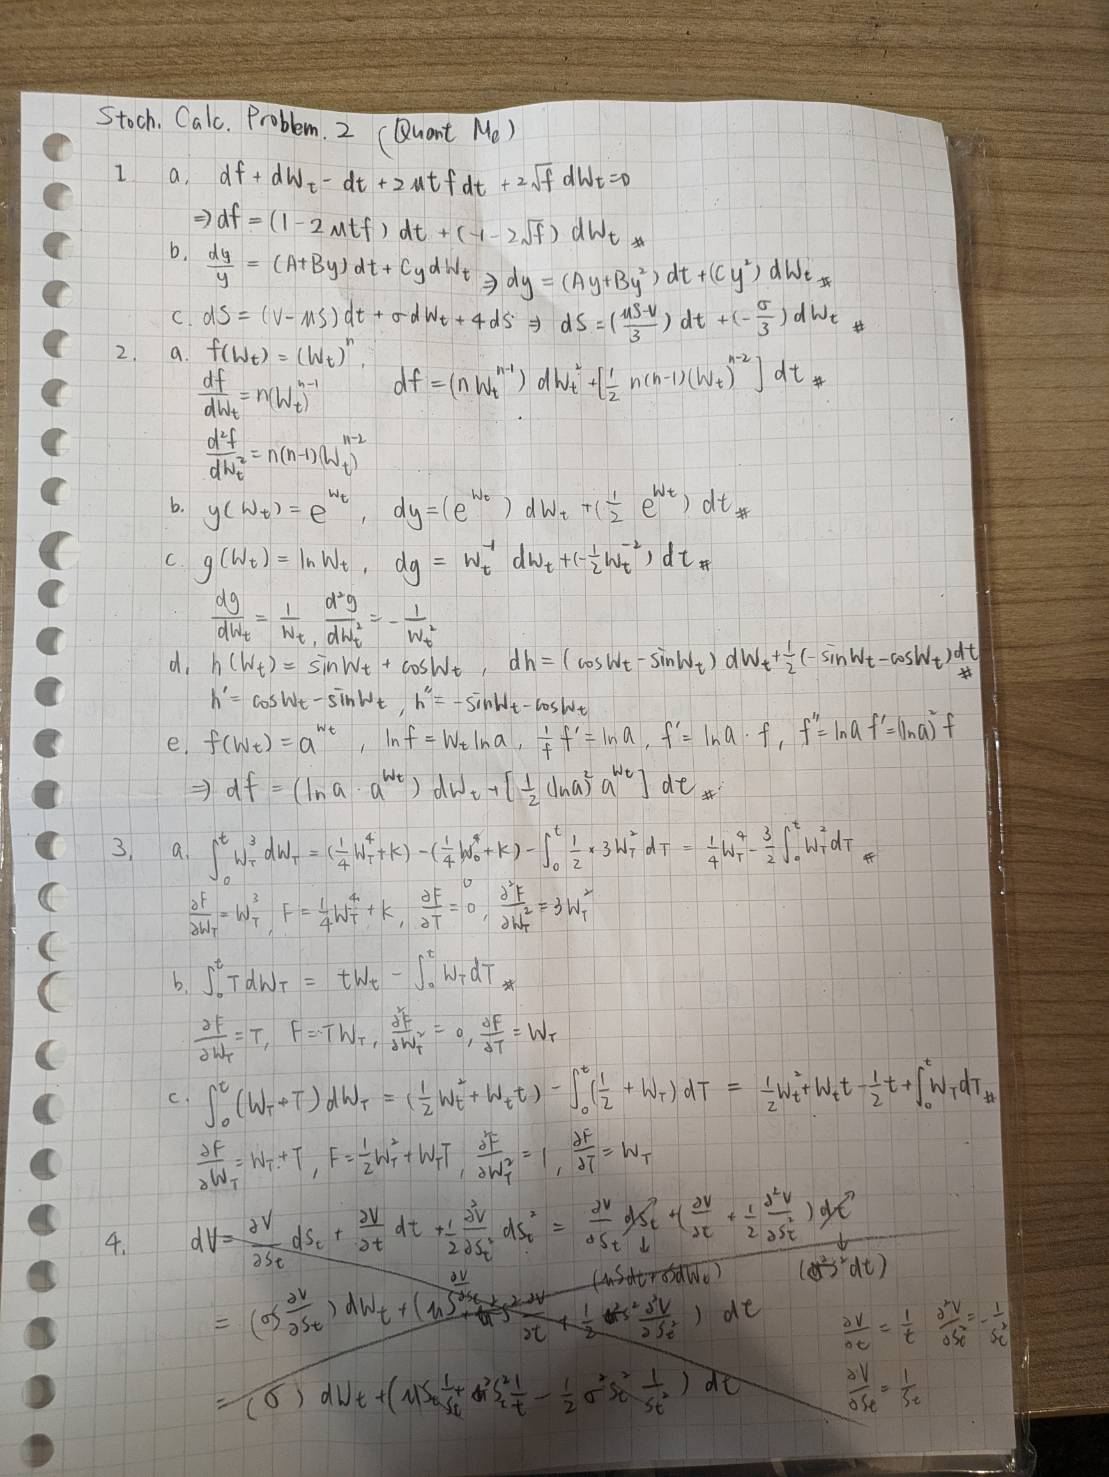 Stoch. Calc. Problem. 2 (Quant Me)
1 a. df + dW_t - dt + 2μtfdt + 2√f dW_t = 0
⇒ df = (1 - 2μtf) dt + (-1 - 2√f) dW_t #
b. dy/y = (A+By)dt + CydW_t ⇒ dy = (Ay+By²)dt + (Cy²)dW_t #
c. dS = (ν-μS)dt + σdW_t + 4dS ⇒ dS = (μS-ν/3) dt + (-σ/3) dW_t #
2. a. f(W_t) = (W_t)^n,
df/dW_t = n(W_t)^n-1 df = (nW_t^n-1) dW_t² + [1/2 n(n-1)(W_t)^n-2] dt #
d²f/dW_t² = n(n-1)(W_t)^n-2
b. y(W_t) = e^W_t, dy = (e^W_t) dW_t + (1/2 e^W_t) dt #
c. g(W_t) = ln W_t, dg = W_t^-1 dW_t + (-1/2 W_t^-2) dt #
dg/dW_t = 1/W_t, d²g/dW_t² = -1/W_t²
d. h(W_t) = sinW_t + cosW_t, dh = (cosW_t - sinW_t) dW_t + 1/2(-sinW_t - cosW_t)dt #
h' = cosW_t - sinW_t, h'' = -sinW_t - cosW_t
e. f(W_t) = a^W_t, ln f = W_t ln a, 1/f f' = ln a, f' = ln a · f, f'' = ln a f' = (ln a)² f
⇒ df = (ln a · a^W_t) dW_t + [1/2 (ln a)² a^W_t] dt #
3. a. ∫_0^t W_T³ dW_T = (1/4 W_T⁴ + k) - (1/4 W_0⁴ + k) - ∫_0^t 1/2 × 3W_T² dT = 1/4 W_T⁴ - 3/2 ∫_0^t W_T² dT #
∂F/∂W_T = W_T³, F = 1/4 W_T⁴ + k, ∂F/∂T = 0, ∂²F/∂W_T² = 3W_T²
b. ∫_0^t T dW_T = tW_t - ∫_0^t W_T dT #
∂F/∂W_T = T, F = TW_T, ∂²F/∂W_T² = 0, ∂F/∂T = W_T
c. ∫_0^t (W_T + T) dW_T = (1/2 W_t² + W_t t) - ∫_0^t (1/2 + W_T) dT = 1/2 W_t² + W_t t - 1/2 t + ∫_0^t W_T dT #
∂F/∂W_T = W_T + T, F = 1/2 W_T² + W_T T, ∂²F/∂W_T² = 1, ∂F/∂T = W_T
4. dV = ∂V/∂S_t dS_t + ∂V/∂t dt + 1/2 ∂²V/∂S_t² dS_t² = ∂V/∂S_t dS_t + (∂V/∂t + 1/2 ∂²V/∂S_t²) dt
(μSdt + σSdW_t) (σ²S² dt)
= (σS ∂V/∂S_t) dW_t + (μS ∂V/∂S_t + ∂V/∂t + 1/2 σ²S² ∂²V/∂S_t²) dt
∂V/∂t = 1/t ∂²V/∂S_t² = -1/S_t²
∂V/∂S_t = 1/S_t
= (σ) dW_t + (μS_t 1/S_t + σ²S_t² 1/t - 1/2 σ² S_t² 1/S_t²) dt